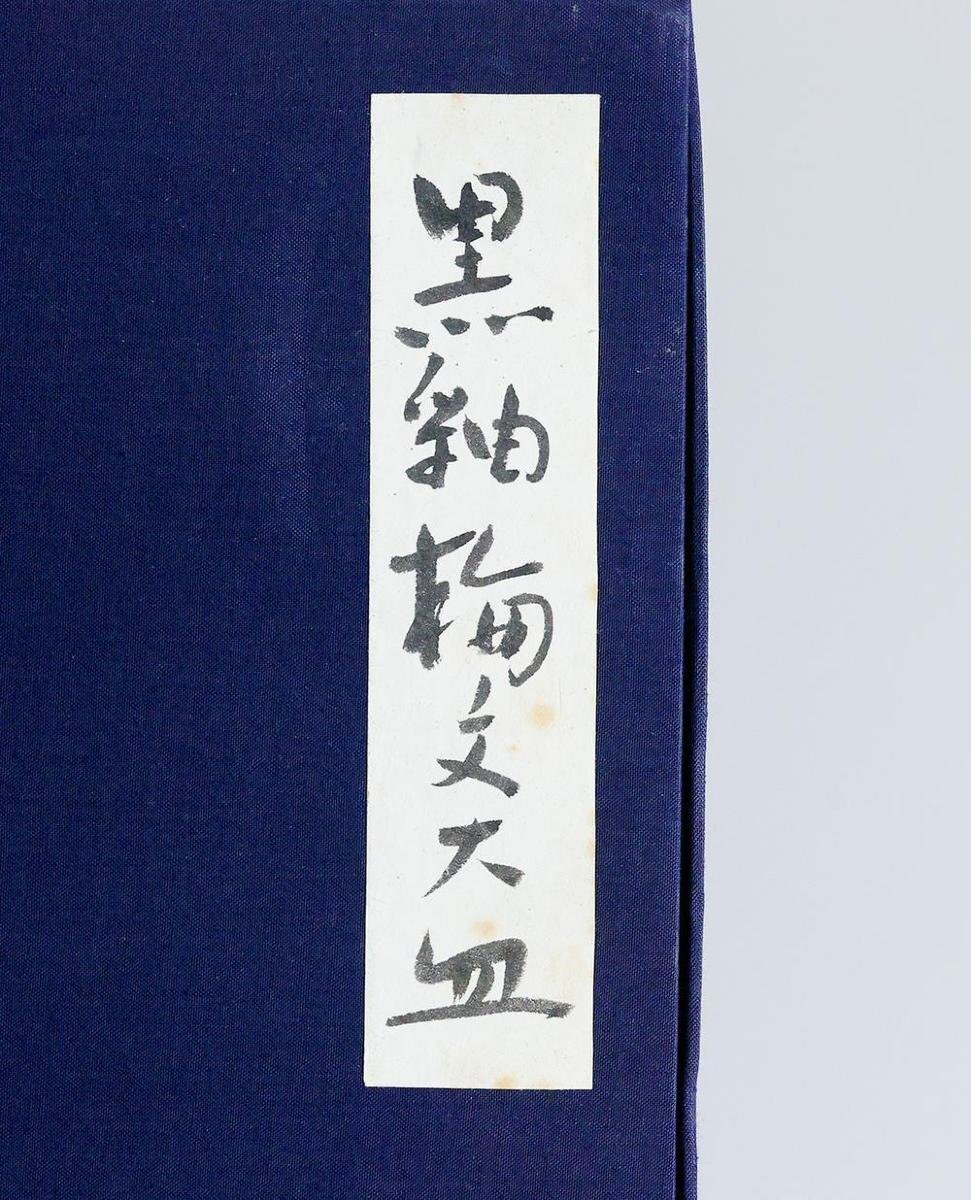 黒釉輪文大皿